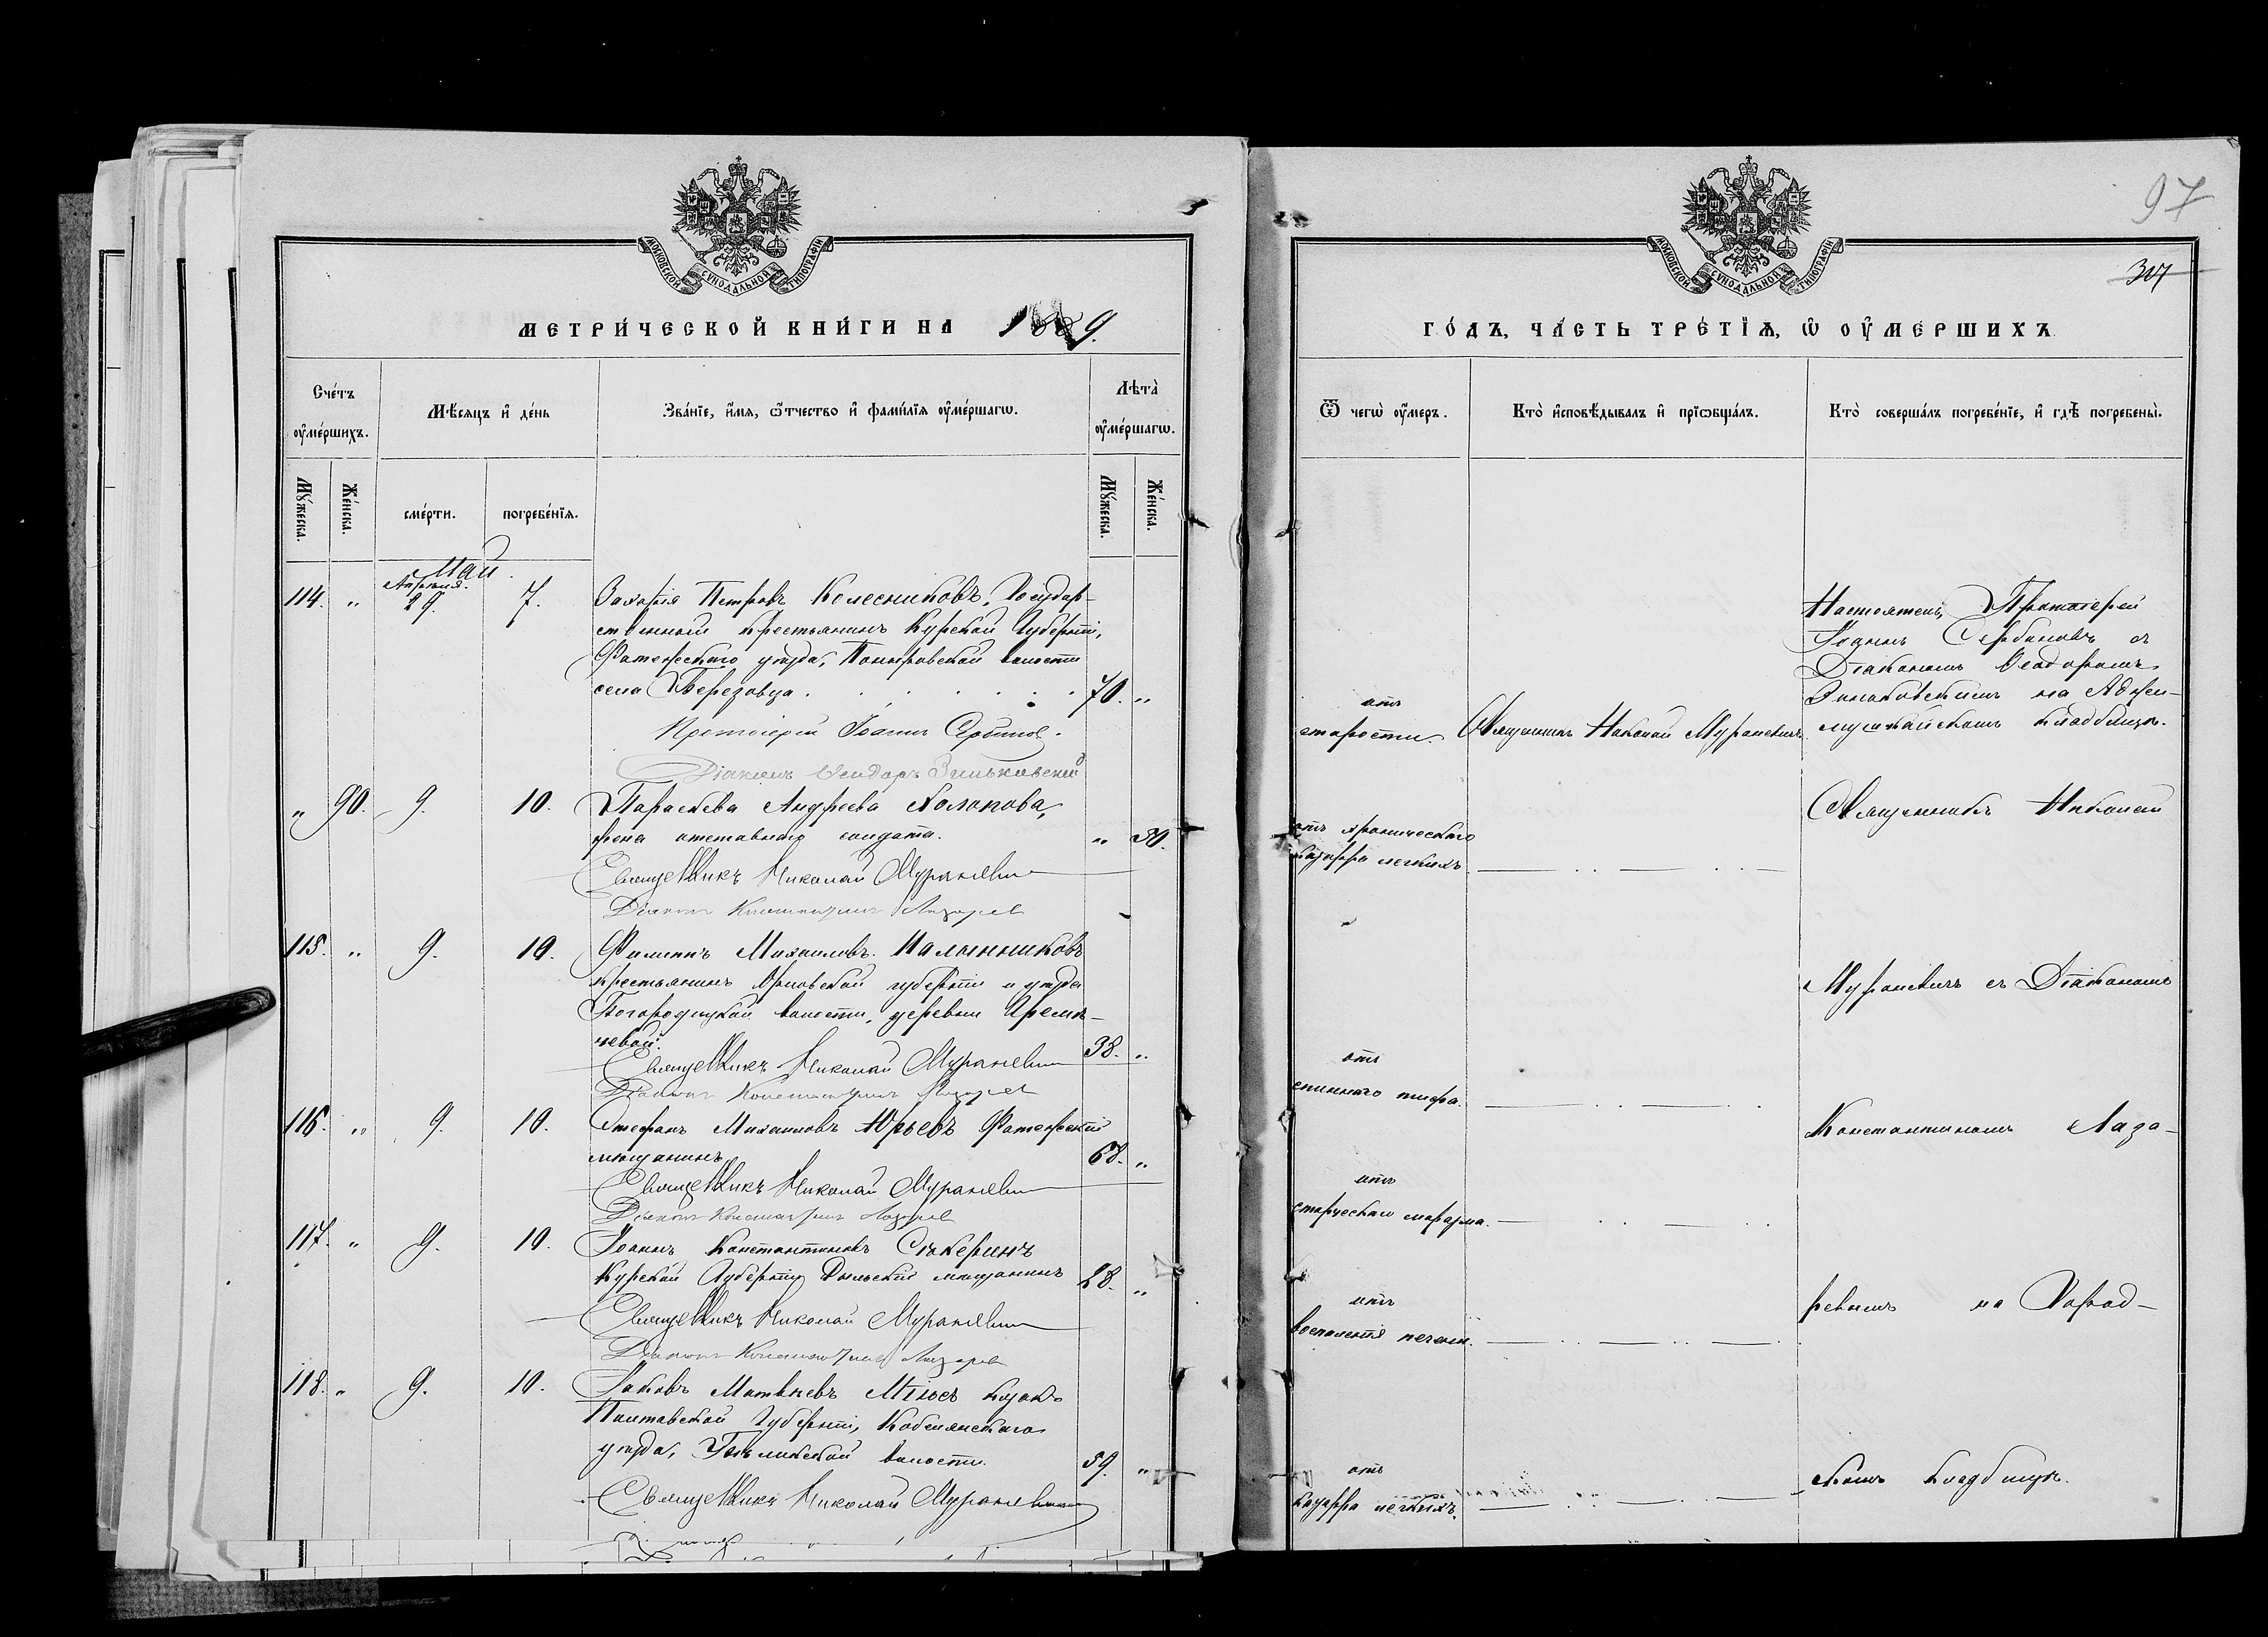 МОСКОВСКОЙ СУНОДАЛЬНОЙ ТИПОГРАФІИ
МЕТРИ́ЧЕСКОЙ КНИ́ГИ НА 1889.
Сче́тъ оу҆ме́ршихъ.
Мѣ́сяцъ и҆ де́нь
Зва́нїе, и҆́мя, ѻ҆́тчество и҆ фами́лїя оу҆ме́ршагѡ.
Лѣта̀ оу҆ме́ршагѡ.
Мꙋ́жеска.
Же́нска.
сме́рти.
погребе́нїя.
Мꙋ́жеска.
Же́нска.
Май.
Апрѣля.
114. „ 29. 7. Захарія Петровъ Колесниковъ, Государ-
ственный крестьянинъ Курской Губерніи,
Фатежскаго уѣзда, Поныровской волости
села Березовца. 70. „
Протоіерей Іоаннъ Сербиновъ.
Діаконъ Ѳеодоръ Зиньковскій
„ 90. 9. 10. Параскева Андреева Холопова,
жена отставнаго солдата. „ 50.
Священникъ Николай Мураневичъ
Діаконъ Константинъ Лазарев
115. „ 9. 10. Филиппъ Михаиловъ
крестьянинъ Орловской губерніи и уѣзда
Богородицкой волости, деревни
чевой. 38. „
Священникъ Николай Мураневичъ
Діаконъ Константинъ Лазарев
116. „ 9. 10. Стефанъ Михаиловъ Юрьевъ Фатежскій
мѣщанинъ 68. „
Священникъ Николай Мураневичъ
Діаконъ Константинъ Лазарев
117. „ 9. 10. Іоаннъ Константиновъ
Курской Губерніи Рыльскій мѣщанинъ 28. „
Священникъ Николай Мураневичъ
Діаконъ Константинъ Лазарев
118. „ 9. 10. Іаковъ Матвѣевъ козакъ
Полтавской Губерніи, Кобелякскаго
уѣзда, волости. 59. „
Священникъ Николай Мураневичъ
97
МОСКОВСКОЙ СУНОДАЛЬНОЙ ТИПОГРАФІИ
317
ГО́ДЪ, ЧА́СТЬ ТРЕ́ТЇЯ, Ѡ҆ ОУ҆МЕ́РШИХЪ
Ѿ чегѡ̀ оу҆́меръ.
Кто̀ и҆сповѣ́дывалъ и҆ прїѡбща́лъ.
Кто̀ соверша́лъ погребе́нїе, и҆ гдѣ̀ погребены̀.
отъ
старости.
Священникъ Николай Мураневичъ
Настоятель, Протоіерей
Іоаннъ Сербиновъ съ
Діакономъ Ѳеодоромъ
Зиньковскимъ на Аджи-
мушкайскомъ кладбищѣ.
отъ хроническаго
катарра легкихъ.
Священникъ Николай
Мураневичъ съ Діакономъ
отъ
сыпнаго тифа.
Константиномъ Лаза-
отъ
старческаго маразма.
ревымъ на Город-
отъ
воспаленія печени.
скомъ кладбищѣ.
отъ
катарра легкихъ.